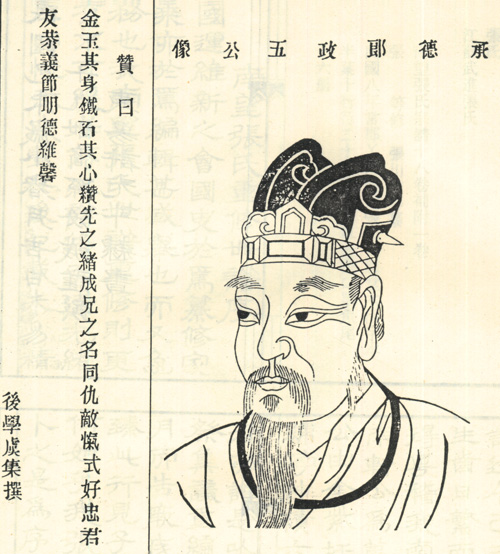 承德郎政五公像
贊曰
金玉其身鐵石其心纘先之緒成兄之名同仇敵愾式好忠君
友恭義節明德維馨
後學虞集撰